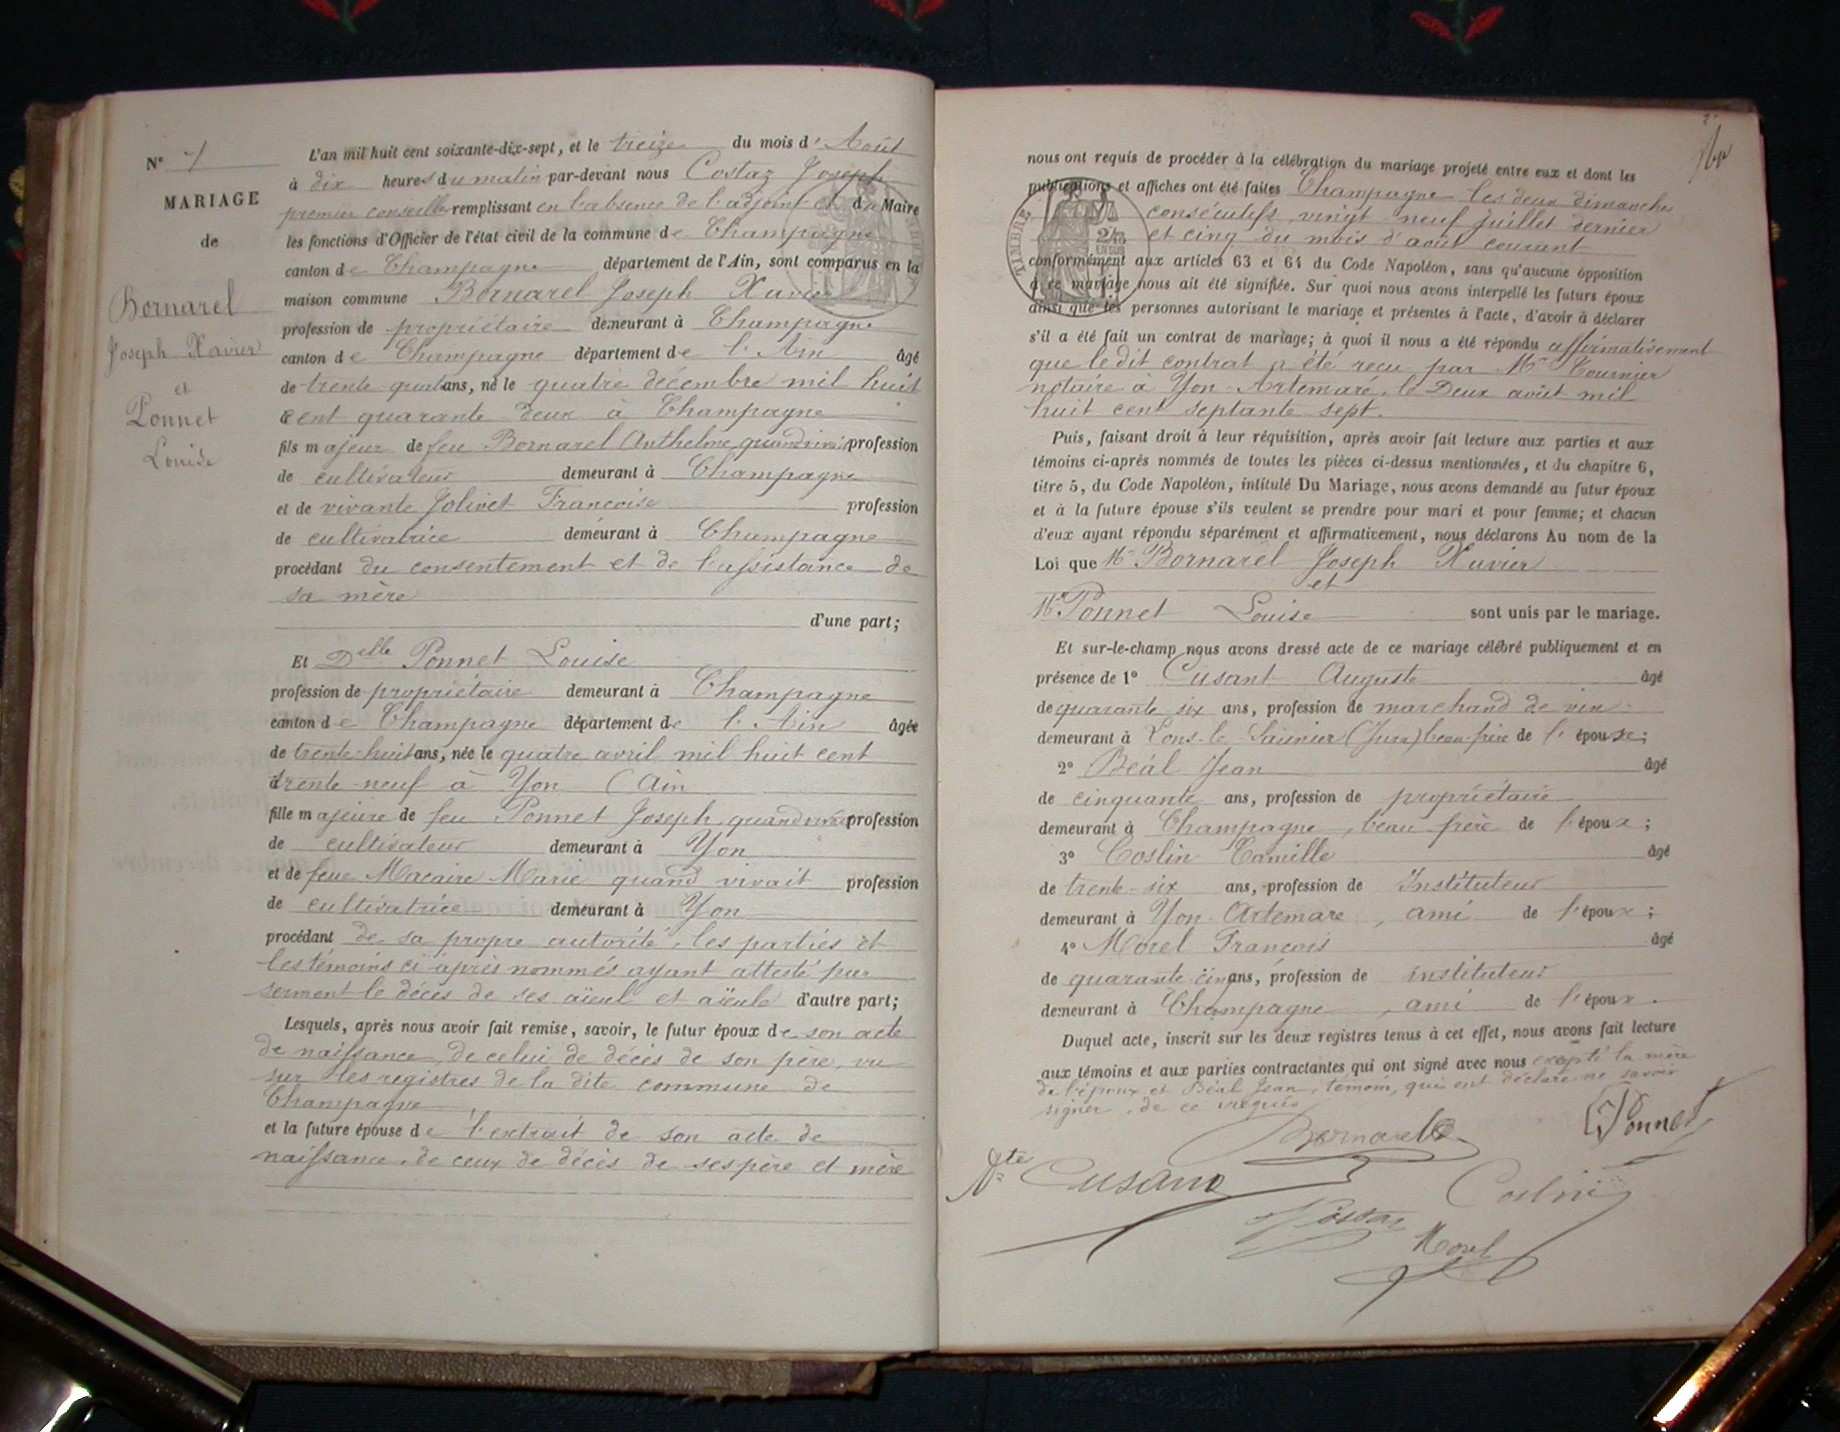 N° 7
MARIAGE
de
Bornarel
Joseph Xavier
et
Ponnet
Louise
L'an mil huit cent soixante-dix-sept, et le treize du mois d'Août
à dix heures du matin par-devant nous Costaz Joseph
premier conseiller remplissant en l'absence de l'adjoint et du Maire
les fonctions d'Officier de l'état civil de la commune de Champagne
canton de Champagne département de l'Ain, sont comparus en la
maison commune Bornarel Joseph Xavier
profession de propriétaire demeurant à Champagne
canton de Champagne département de l'Ain âgé
de trente quatre ans, né le quatre décembre mil huit
cent quarante deux à Champagne
fils majeur de feu Bornarel Anthelme, quand vivait profession
de cultivateur demeurant à Champagne
et de vivante Jolivet Françoise profession
de cultivatrice demeurant à Champagne
procédant du consentement et de l'assistance de
sa mère
d'une part;
Et Delle Ponnet Louise
profession de propriétaire demeurant à Champagne
canton de Champagne département de l'Ain âgée
de trente-huit ans, née le quatre avril mil huit cent
trente neuf à Yon (Ain
fille majeure de feu Ponnet Joseph, quand vivait profession
de cultivateur demeurant à Yon
et de feue Macaire Marie quand vivait profession
de cultivatrice demeurant à Yon
procédant de sa propre autorité, les parties et
les témoins ci-après nommés ayant attesté par
serment le décès de ses aïeul et aïeule d'autre part;
Lesquels, après nous avoir fait remise, savoir, le futur époux de son acte
de naissance, de celui de décès de son père, vu
sur les registres de la dite commune de
Champagne
et la future épouse de l'extrait de son acte de
naissance, de ceux de décès de ses père et mère
nous ont requis de procéder à la célébration du mariage projeté entre eux et dont les
publications et affiches ont été faites Champagne les deux dimanches
consécutifs, vingt neuf juillet dernier
et cinq du mois d'août courant
conformément aux articles 63 et 64 du Code Napoléon, sans qu'aucune opposition
à ce mariage nous ait été signifiée. Sur quoi nous avons interpellé les futurs époux
ainsi que les personnes autorisant le mariage et présentes à l'acte, d'avoir à déclarer
s'il a été fait un contrat de mariage; à quoi il nous a été répondu affirmativement
que le dit contrat a été reçu par Me Tournier
notaire à Yon-Artemare, le Deux août mil
huit cent septante sept.
Puis, faisant droit à leur réquisition, après avoir fait lecture aux parties et aux
témoins ci-après nommés de toutes les pièces ci-dessus mentionnées, et du chapitre 6,
titre 5, du Code Napoléon, intitulé Du Mariage, nous avons demandé au futur époux
et à la future épouse s'ils veulent se prendre pour mari et pour femme; et chacun
d'eux ayant répondu séparément et affirmativement, nous déclarons Au nom de la
Loi que Mr Bornarel Joseph Xavier
et
Ponnet Louise sont unis par le mariage.
Et sur-le-champ nous avons dressé acte de ce mariage célébré publiquement et en
présence de 1° Cusant Auguste âgé
de quarante six ans, profession de marchand de vin
demeurant à Lons-le-Saunier (Jura) beau-frère de l'épouse;
2° Béal Jean âgé
de cinquante ans, profession de propriétaire
demeurant à Champagne, beau frère de l'époux;
3° Coslin Camille âgé
de trente-six ans, profession de Instituteur
demeurant à Yon-Artemare, ami de l'époux;
4° Morel François âgé
de quarante cinq ans, profession de instituteur
demeurant à Champagne, ami de l'époux.
Duquel acte, inscrit sur les deux registres tenus à cet effet, nous avons fait lecture
aux témoins et aux parties contractantes qui ont signé avec nous excepté la mère
de l'époux et Béal Jean, témoin, qui ont déclaré ne savoir
signer, de ce requis
Bornarel
Ponnet
Cusant
Coslin
Costaz
Morel
TIMBRE